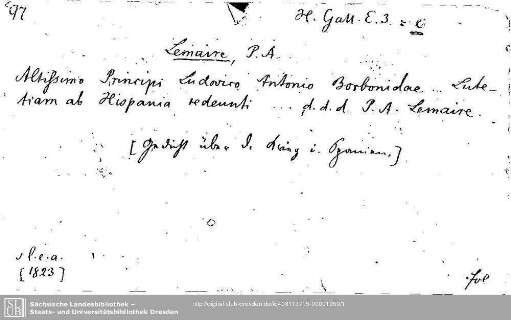 97
H. Gall. E. 3.
Lemaire, P. A.
Altissimo Principi Ludovico Antonio Borbonidae ... Lute-
tiam ab Hispania redeunti ... d. d. d. P. A. Lemaire.
[Gedicht über d. Krieg i. Spanien.]
s. l. e. a.
[1823]
fol
SLUB
Sächsische Landesbibliothek –
Staats- und Universitätsbibliothek Dresden